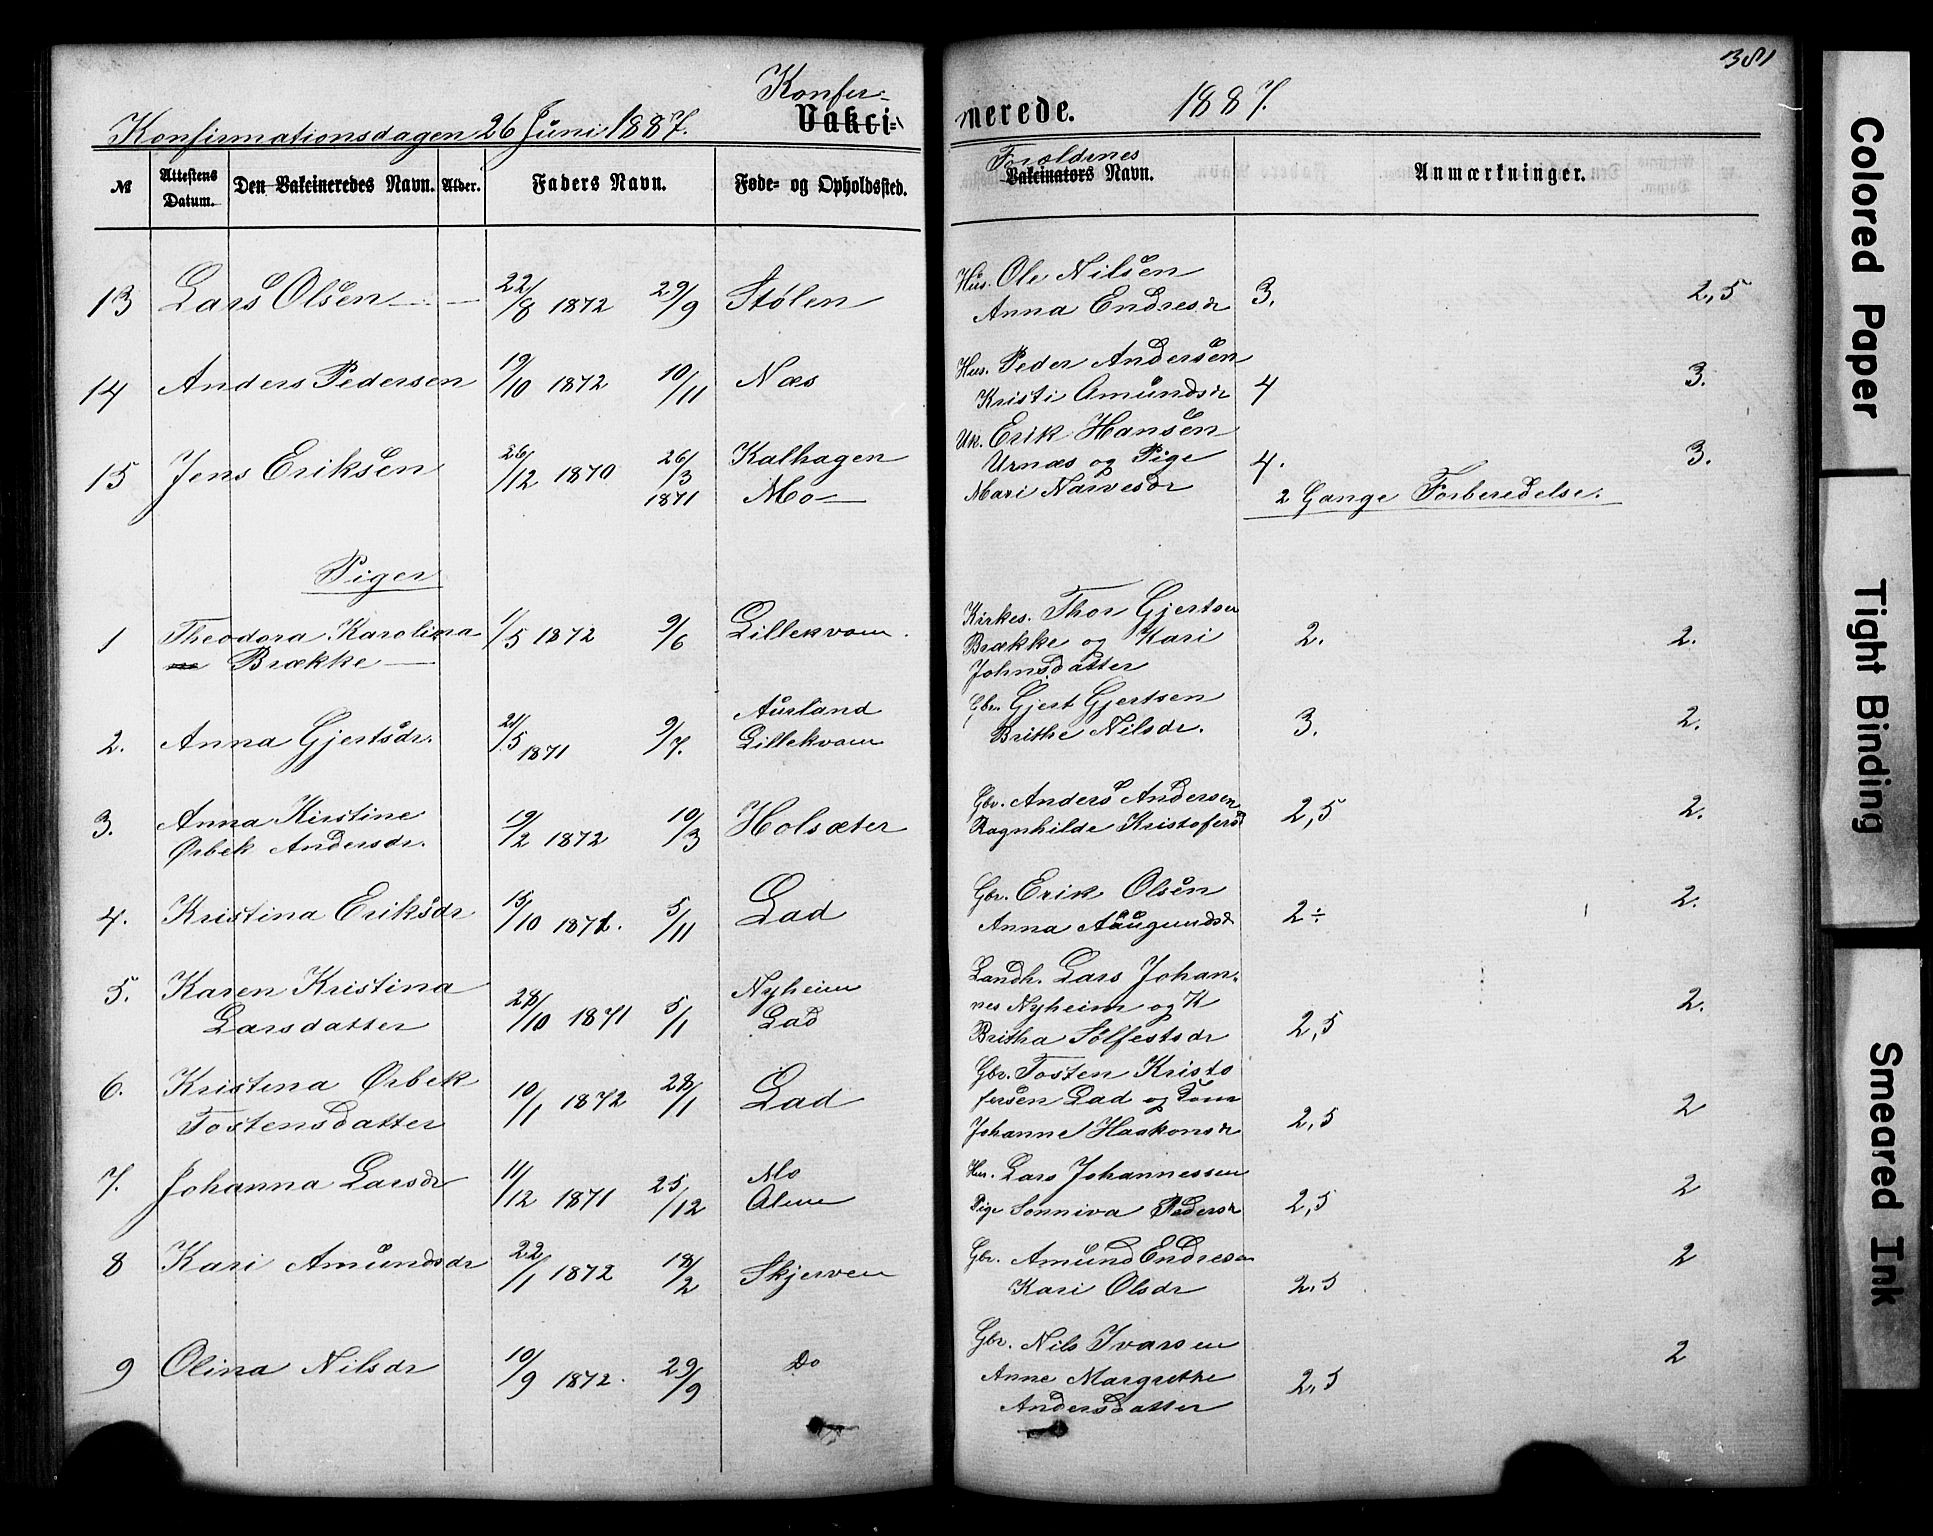 381
Konfir-
Konfirmationsdagen 26 Juni 1887. Vakci- nerede. 1887.
№ Attestens Datum. Den Vakcineredes Navn. Alder. Faders Navn. Føde- og Opholdssted. Forældrenes Vakcinators Navn. Anmærkninger.
13 Lars Olsen 22/8 1872 29/9 Stølen Hus. Ole Nilsen 3. 2,5
Anna Endresdr
14 Anders Pedersen 19/10 1872 10/11 Næs Hus. Peder Andersen 4 3.
Kristi Amundsdr
15 Jens Eriksen 26/12 1870 26/3 1871 Kalhagen Uk. Erik Hansen 4. 3.
Mo Urnæs og Pige
Mari Narvesdr 2 Gange Forberedelse.
Piger
1 Theodora Karolina 1/5 1872 9/6 Lillekvam. Kirkes. Thor Gjertsen 2. 2.
Brække Brække og Kari
Johnsdatter
2. Anna Gjertsdr. 21/5 1871 9/7. Aurland Gbr. Gjert Gjertsen 3. 2.
Lillekvam Brithe Nilsdr.
3. Anna Kirstine 19/2 1872 10/3 Holsæter Gbr. Anders Andersen 2,5 2.
Ørbek Andersdr. Ragnhilde Kristofersd
4. Kristina Eriksdr 15/10 1871. 5/11 Lad Gbr. Erik Olsen 2÷ 2.
Anna
5. Karen Kristina 28/10 1871 5/1 Nyheim Landh. Lars Johan- 2,5 2.
Larsdatter Lad nes Nyheim og K
Britha Sølfestsdr
6. Kristina Ørbek 10/1 1872 28/1 Lad Gbr. Tosten Kristo 2,5 2
Tostensdatter fersen Lad og
Johanne Haakonsdr
7. Johanna Larsdr 11/12 1871 25/12 Mo Hus. Lars Johannessen 2,5 2
Alme Pige Sonniva Pedersdr
8 Kari Amundsdr 22/1 1872 18/2 Skjerven Gbr. Amund Endresen 2,5 2
Kari Olsdr
9 Olina Nilsdr 10/9 1872. 29/9 Do Gbr. Nils Ivarsen 2,5 2
Anne Margrethe
Andersdatter
Colored Paper
Tight Binding
Smeared Ink